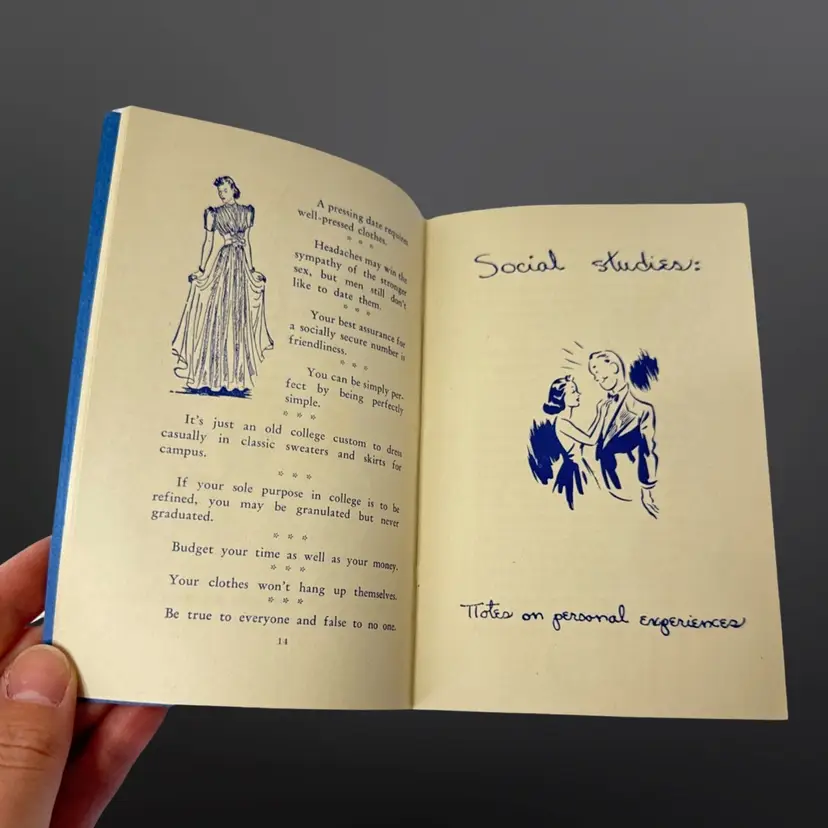 A pressing date requires
well-pressed clothes.
* * *
Headaches may win the
sympathy of the stronger
sex, but men still don't
like to date them.
* * *
Your best assurance for
a socially secure number is
friendliness.
* * *
You can be simply per-
fect by being perfectly
simple.
* * *
It's just an old college custom to dress
casually in classic sweaters and skirts for
campus.
* * *
If your sole purpose in college is to be
refined, you may be granulated but never
graduated.
* * *
Budget your time as well as your money.
* * *
Your clothes won't hang up themselves.
* * *
Be true to everyone and false to no one.
14
Social studies:
Notes on personal experiences